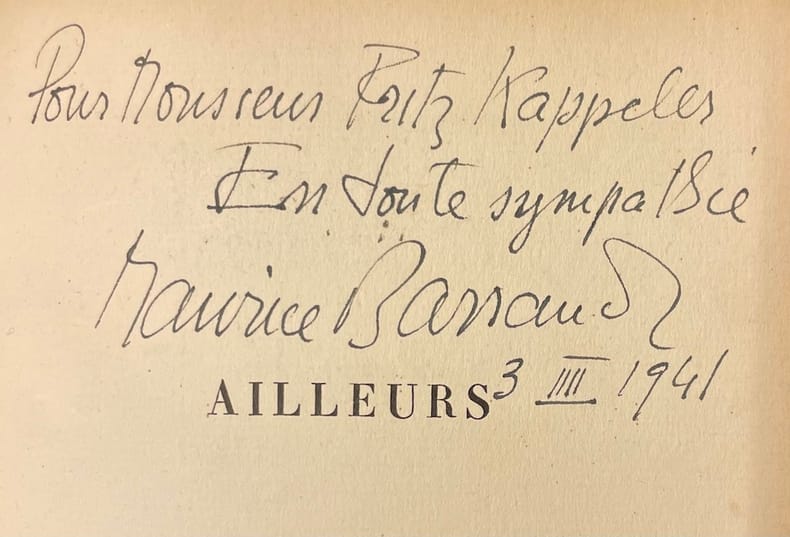 Pour Monsieur Fritz Kappeler
En toute sympathie
Maurice Barraud
AILLEURS 3 IIII 1941